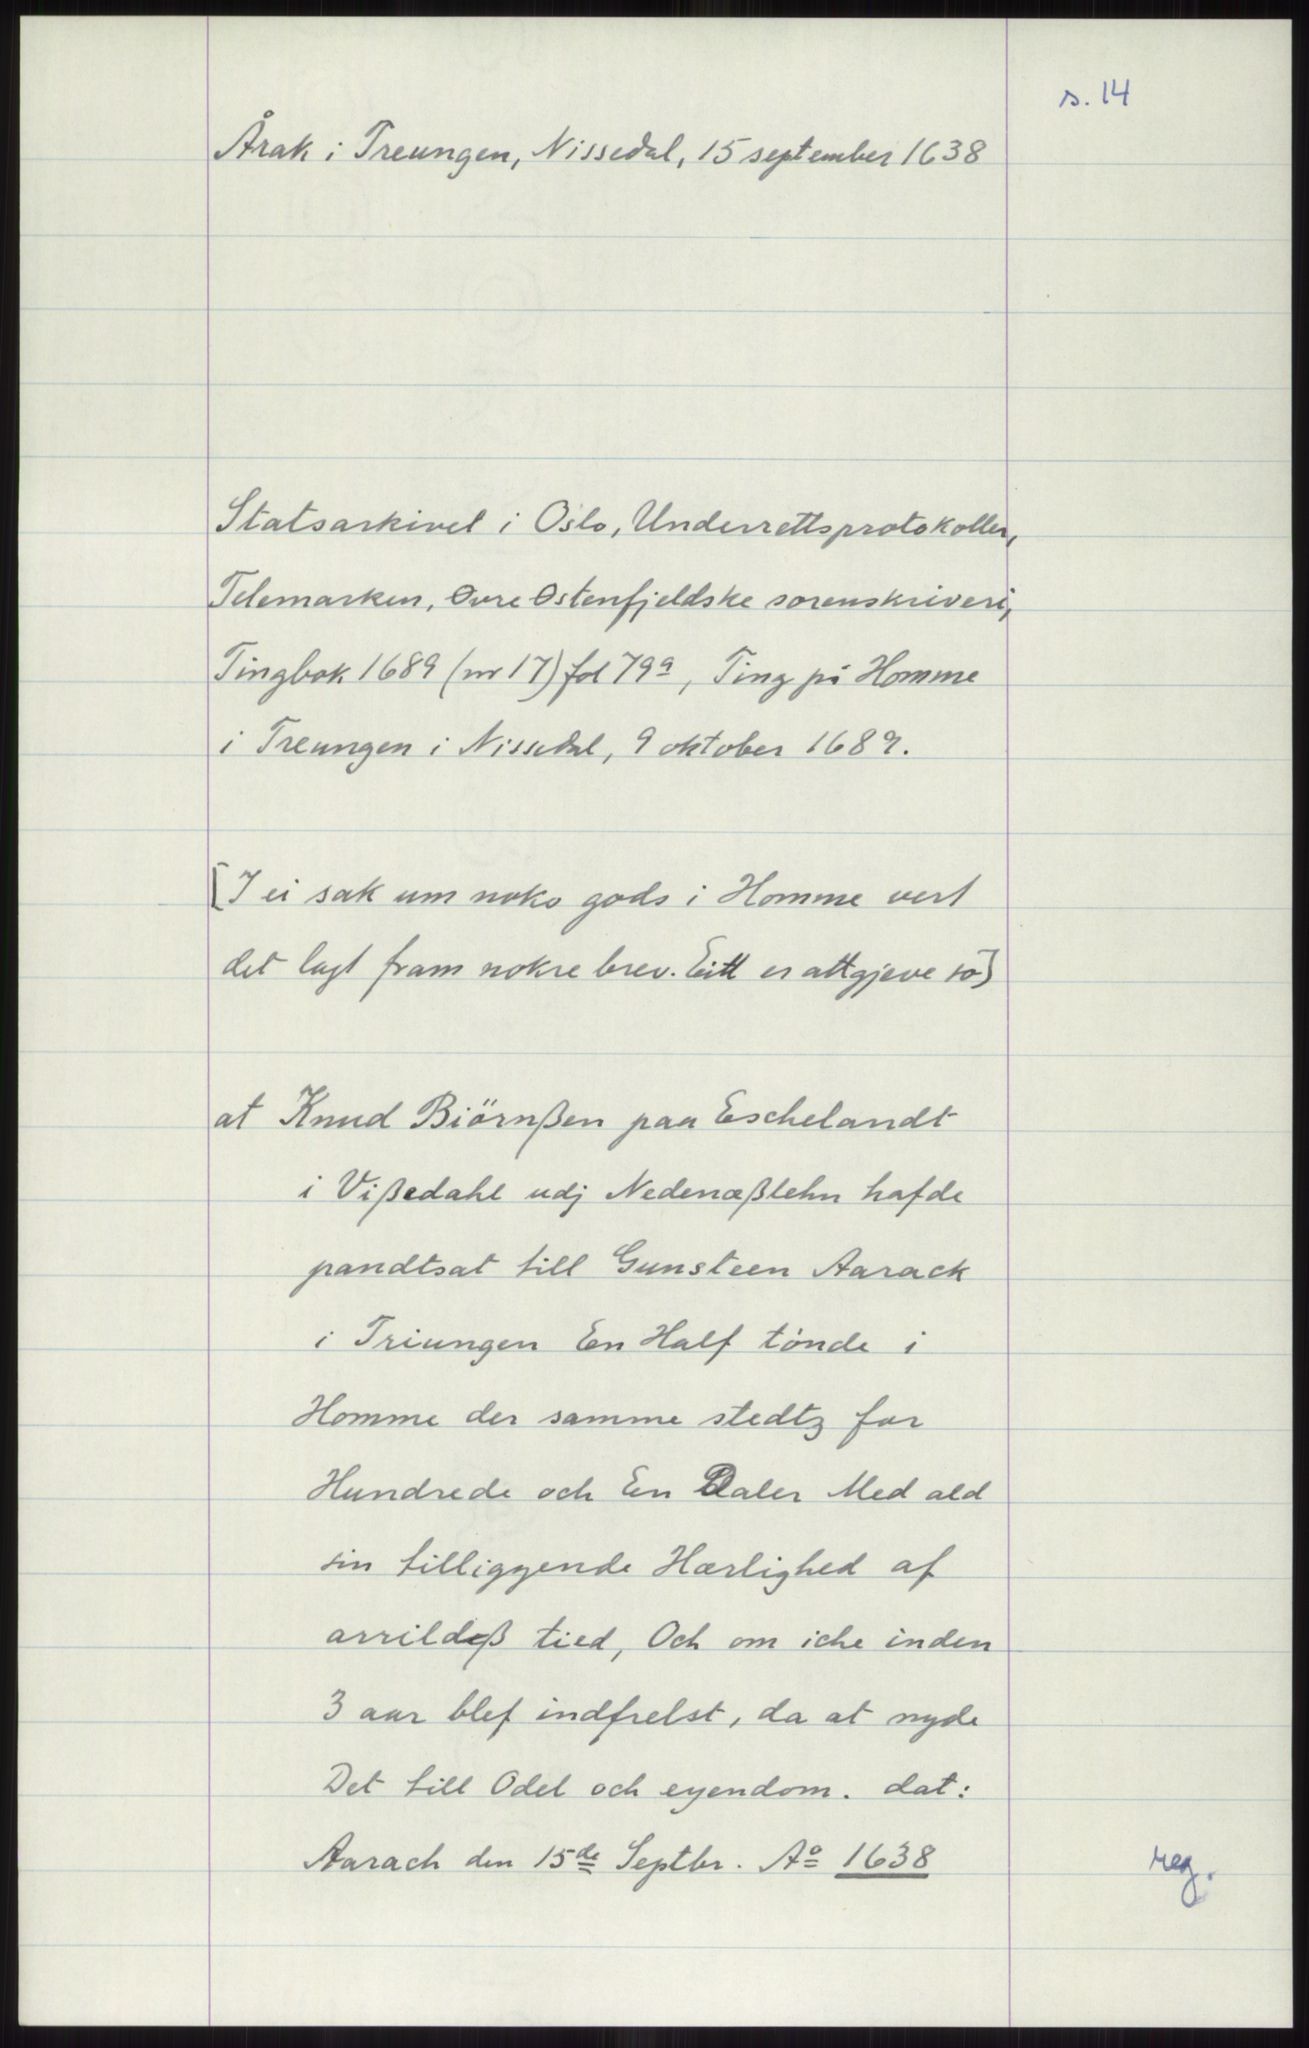 s. 14
Årak i Treungen, Nissedal, 15 september 1638
Statsarkivet i Oslo, Underrettsprotokoller,
Telemarken, Øvre Østenfjeldske sorenskriveri,
Tingbok 1689 (nr 17) fol 79a, Ting på Homme
i Treungen i Nissedal, 9 oktober 1689.
[I ei sak um noko gods i Homme vert
det lagt fram nokre brev. Eitt er attgjeve so]
at Knud Biörnßen paa Eschelandt
i Vißedahl udj Nedenæßlehn hafde
pandtsat till Gunsteen Aarack
i Triungen En Half tönde i
Homme der samme stedtz for
Hundrede och En Daler Med ald
sin tilliggende Hærlighed af
arrildeß tied, Och om iche inden
3 aar blef indfrelst, da at nyde
Det till Odel och eyendom. dat:
Aarach den 15de Septbr. Ao 1638
reg.